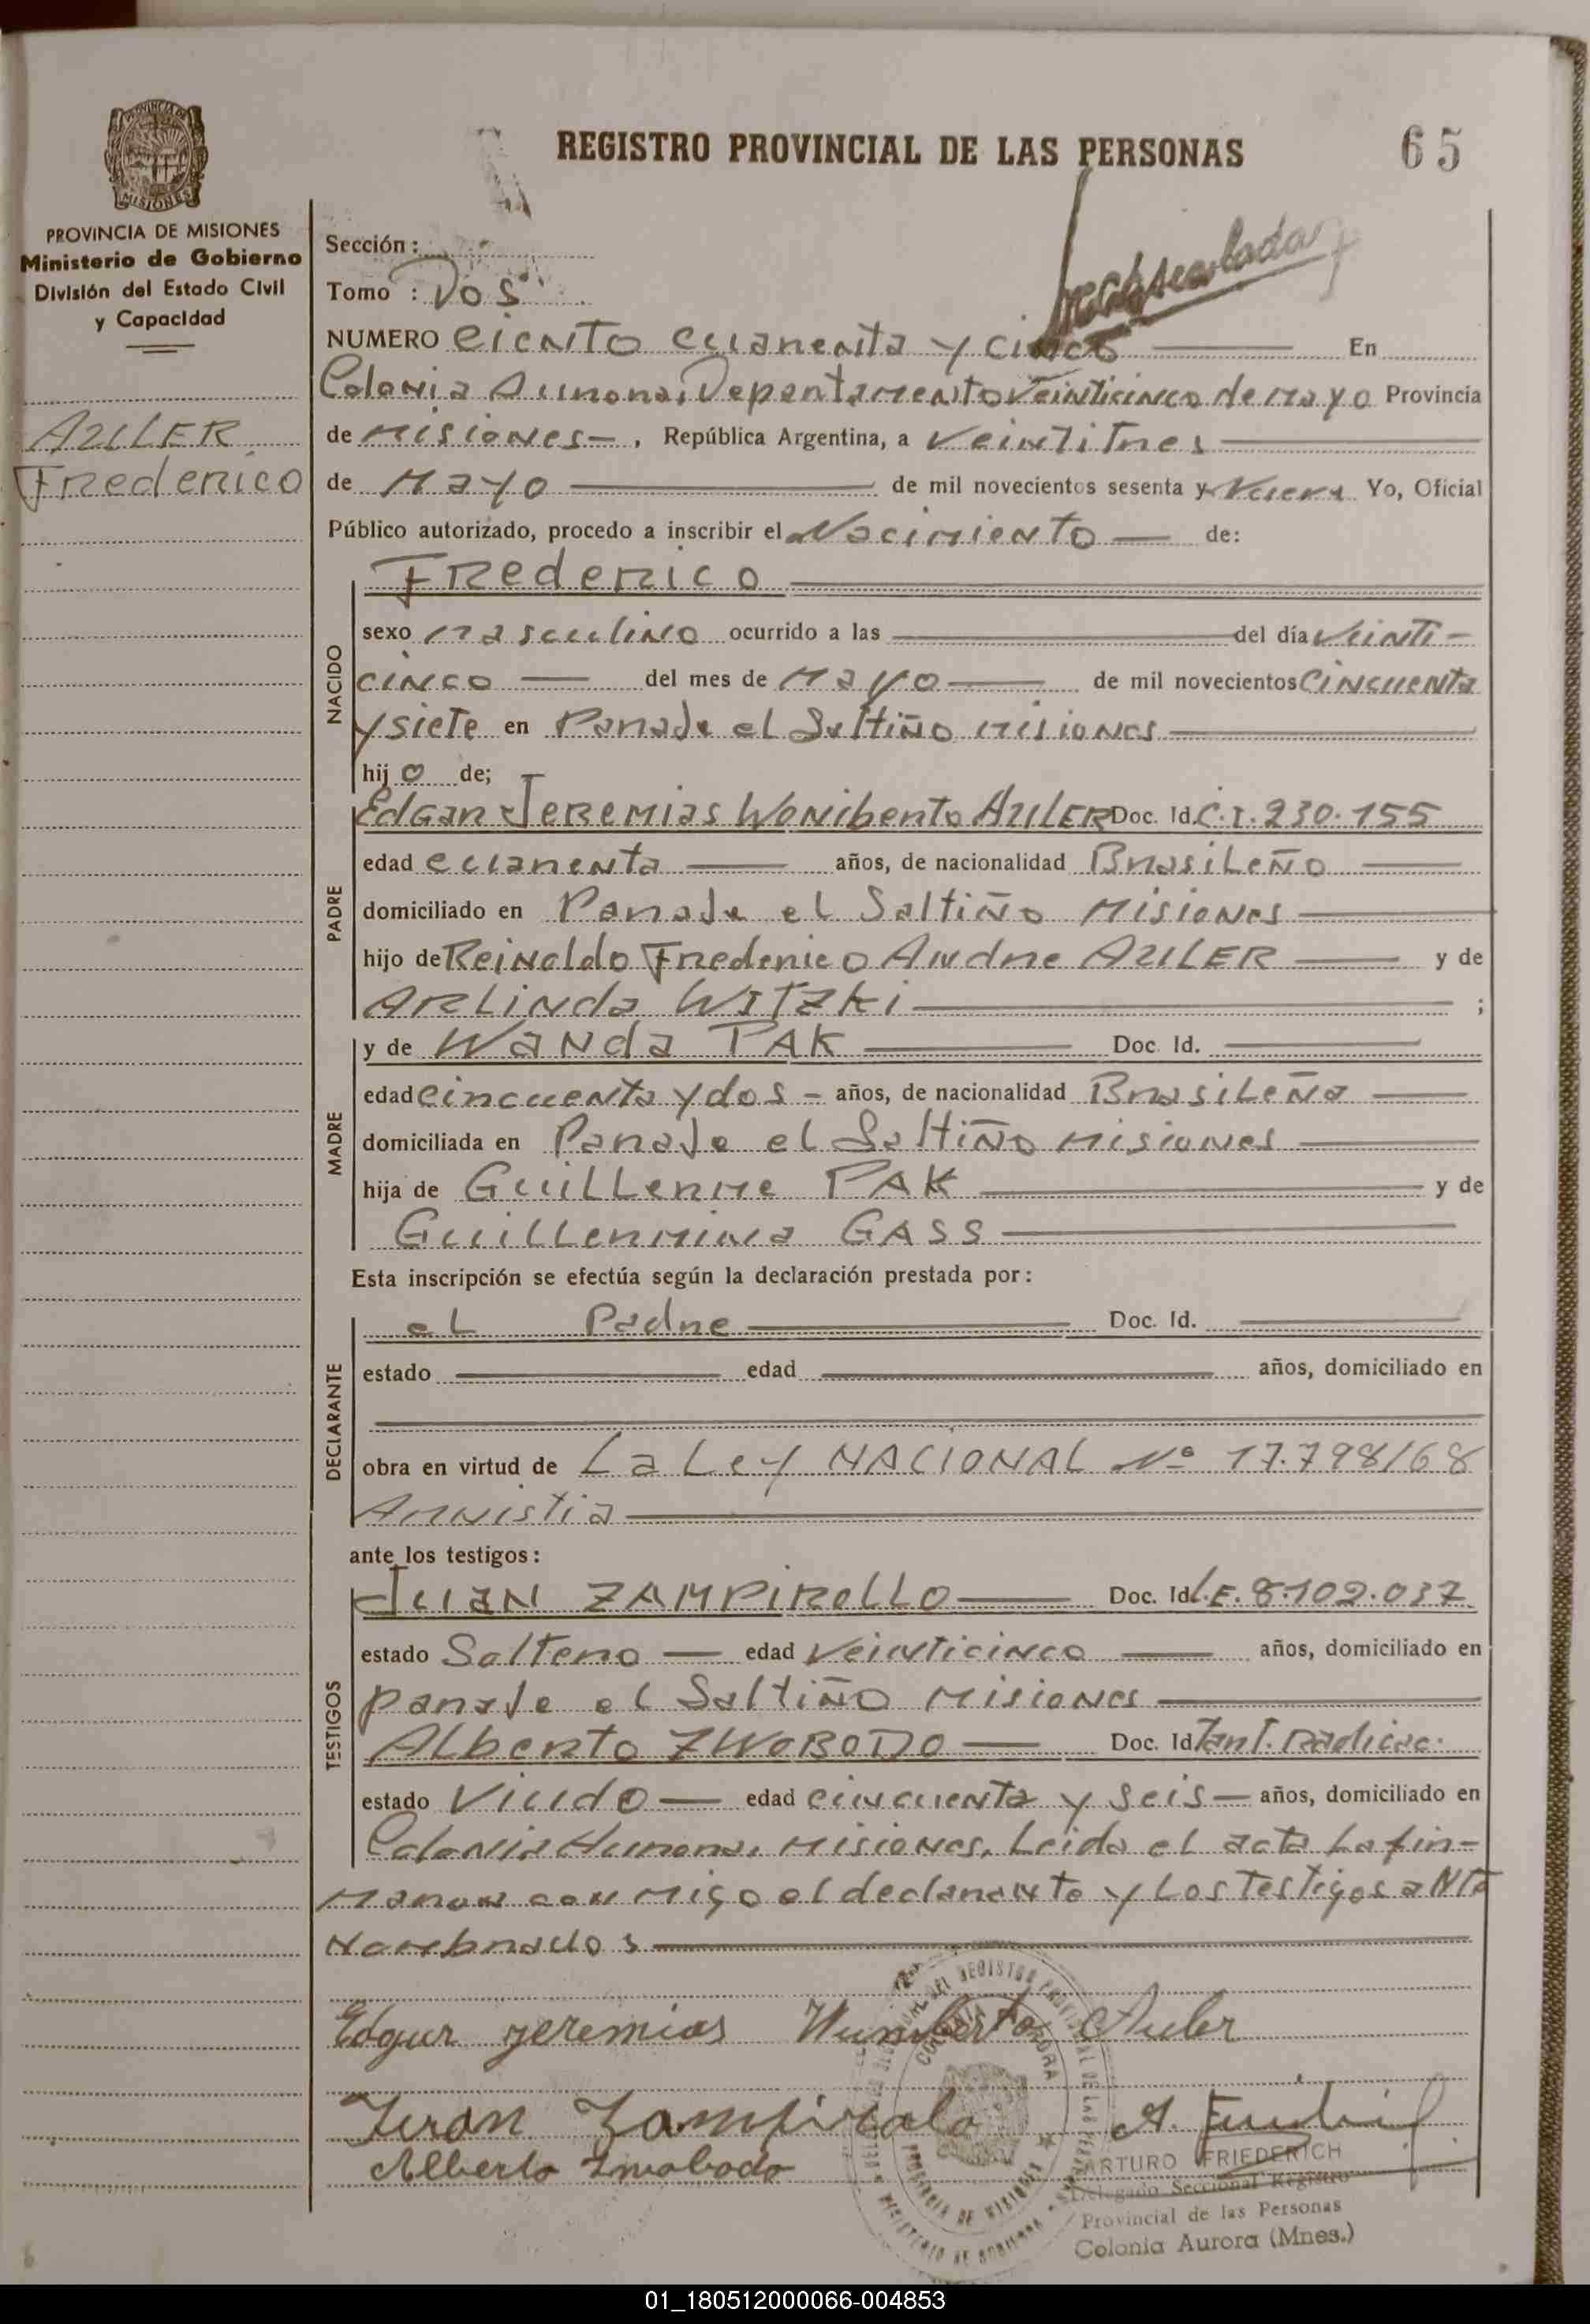 REGISTRO PROVINCIAL DE LAS PERSONAS
65
PROVINCIA DE MISIONES
Ministerio de Gobierno
División del Estado Civil
y Capacidad
AULER
Frederico
Sección :
Tomo : Dos
NUMERO Ciento cuarenta y cinco En
Colonia Aurora, Departamento Veinticinco de Mayo Provincia
de Misiones , República Argentina, a veintitres
de Mayo de mil novecientos sesenta y nueve Yo, Oficial
Público autorizado, procedo a inscribir el Nacimiento de:
NACIDO
Frederico
sexo masculino ocurrido a las del día veinti-
cinco del mes de Mayo de mil novecientos cincuenta
y siete en Paraje el Saltiño Misiones
hijo de;
PADRE
Edgar Jeremias Wonibento AULER Doc. Id. C.I. 230.155
edad cuarenta años, de nacionalidad Brasileño
domiciliado en Paraje el Saltiño Misiones
hijo de Reinaldo Frederico Andre AULER y de
Arlinda WITZKI ;
MADRE
y de Wanda PAK Doc. Id.
edad cincuenta y dos - años, de nacionalidad Brasileña
domiciliada en Paraje el Saltiño Misiones
hija de Guillerme PAK y de
Guillermina GASS
Esta inscripción se efectúa según la declaración prestada por:
DECLARANTE
el Padre Doc. Id.
estado edad años, domiciliado en
obra en virtud de La Ley NACIONAL Nº 17.798/68
Amnistia
ante los testigos:
TESTIGOS
Juan ZAMPIROLLO Doc. Id L.E. 8.102.037
estado Soltero edad veinticinco años, domiciliado en
paraje el Saltiño Misiones
Alberto ZWOBODO Doc. Id Tant. Radicac.
estado Viudo edad cincuenta y seis años, domiciliado en
Colonia Aurora, Misiones. Leida el acta la fir-
maron conmigo el declarante y los testigos ante
nombrados
Edgur Jeremias Wumberto Auler
Juan Zampirolo
Alberto Zwobodo
ARTURO FRIEDERICH
Delegado Seccional Registro
Provincial de las Personas
Colonia Aurora (Mnes.)
01_180512000066-004853